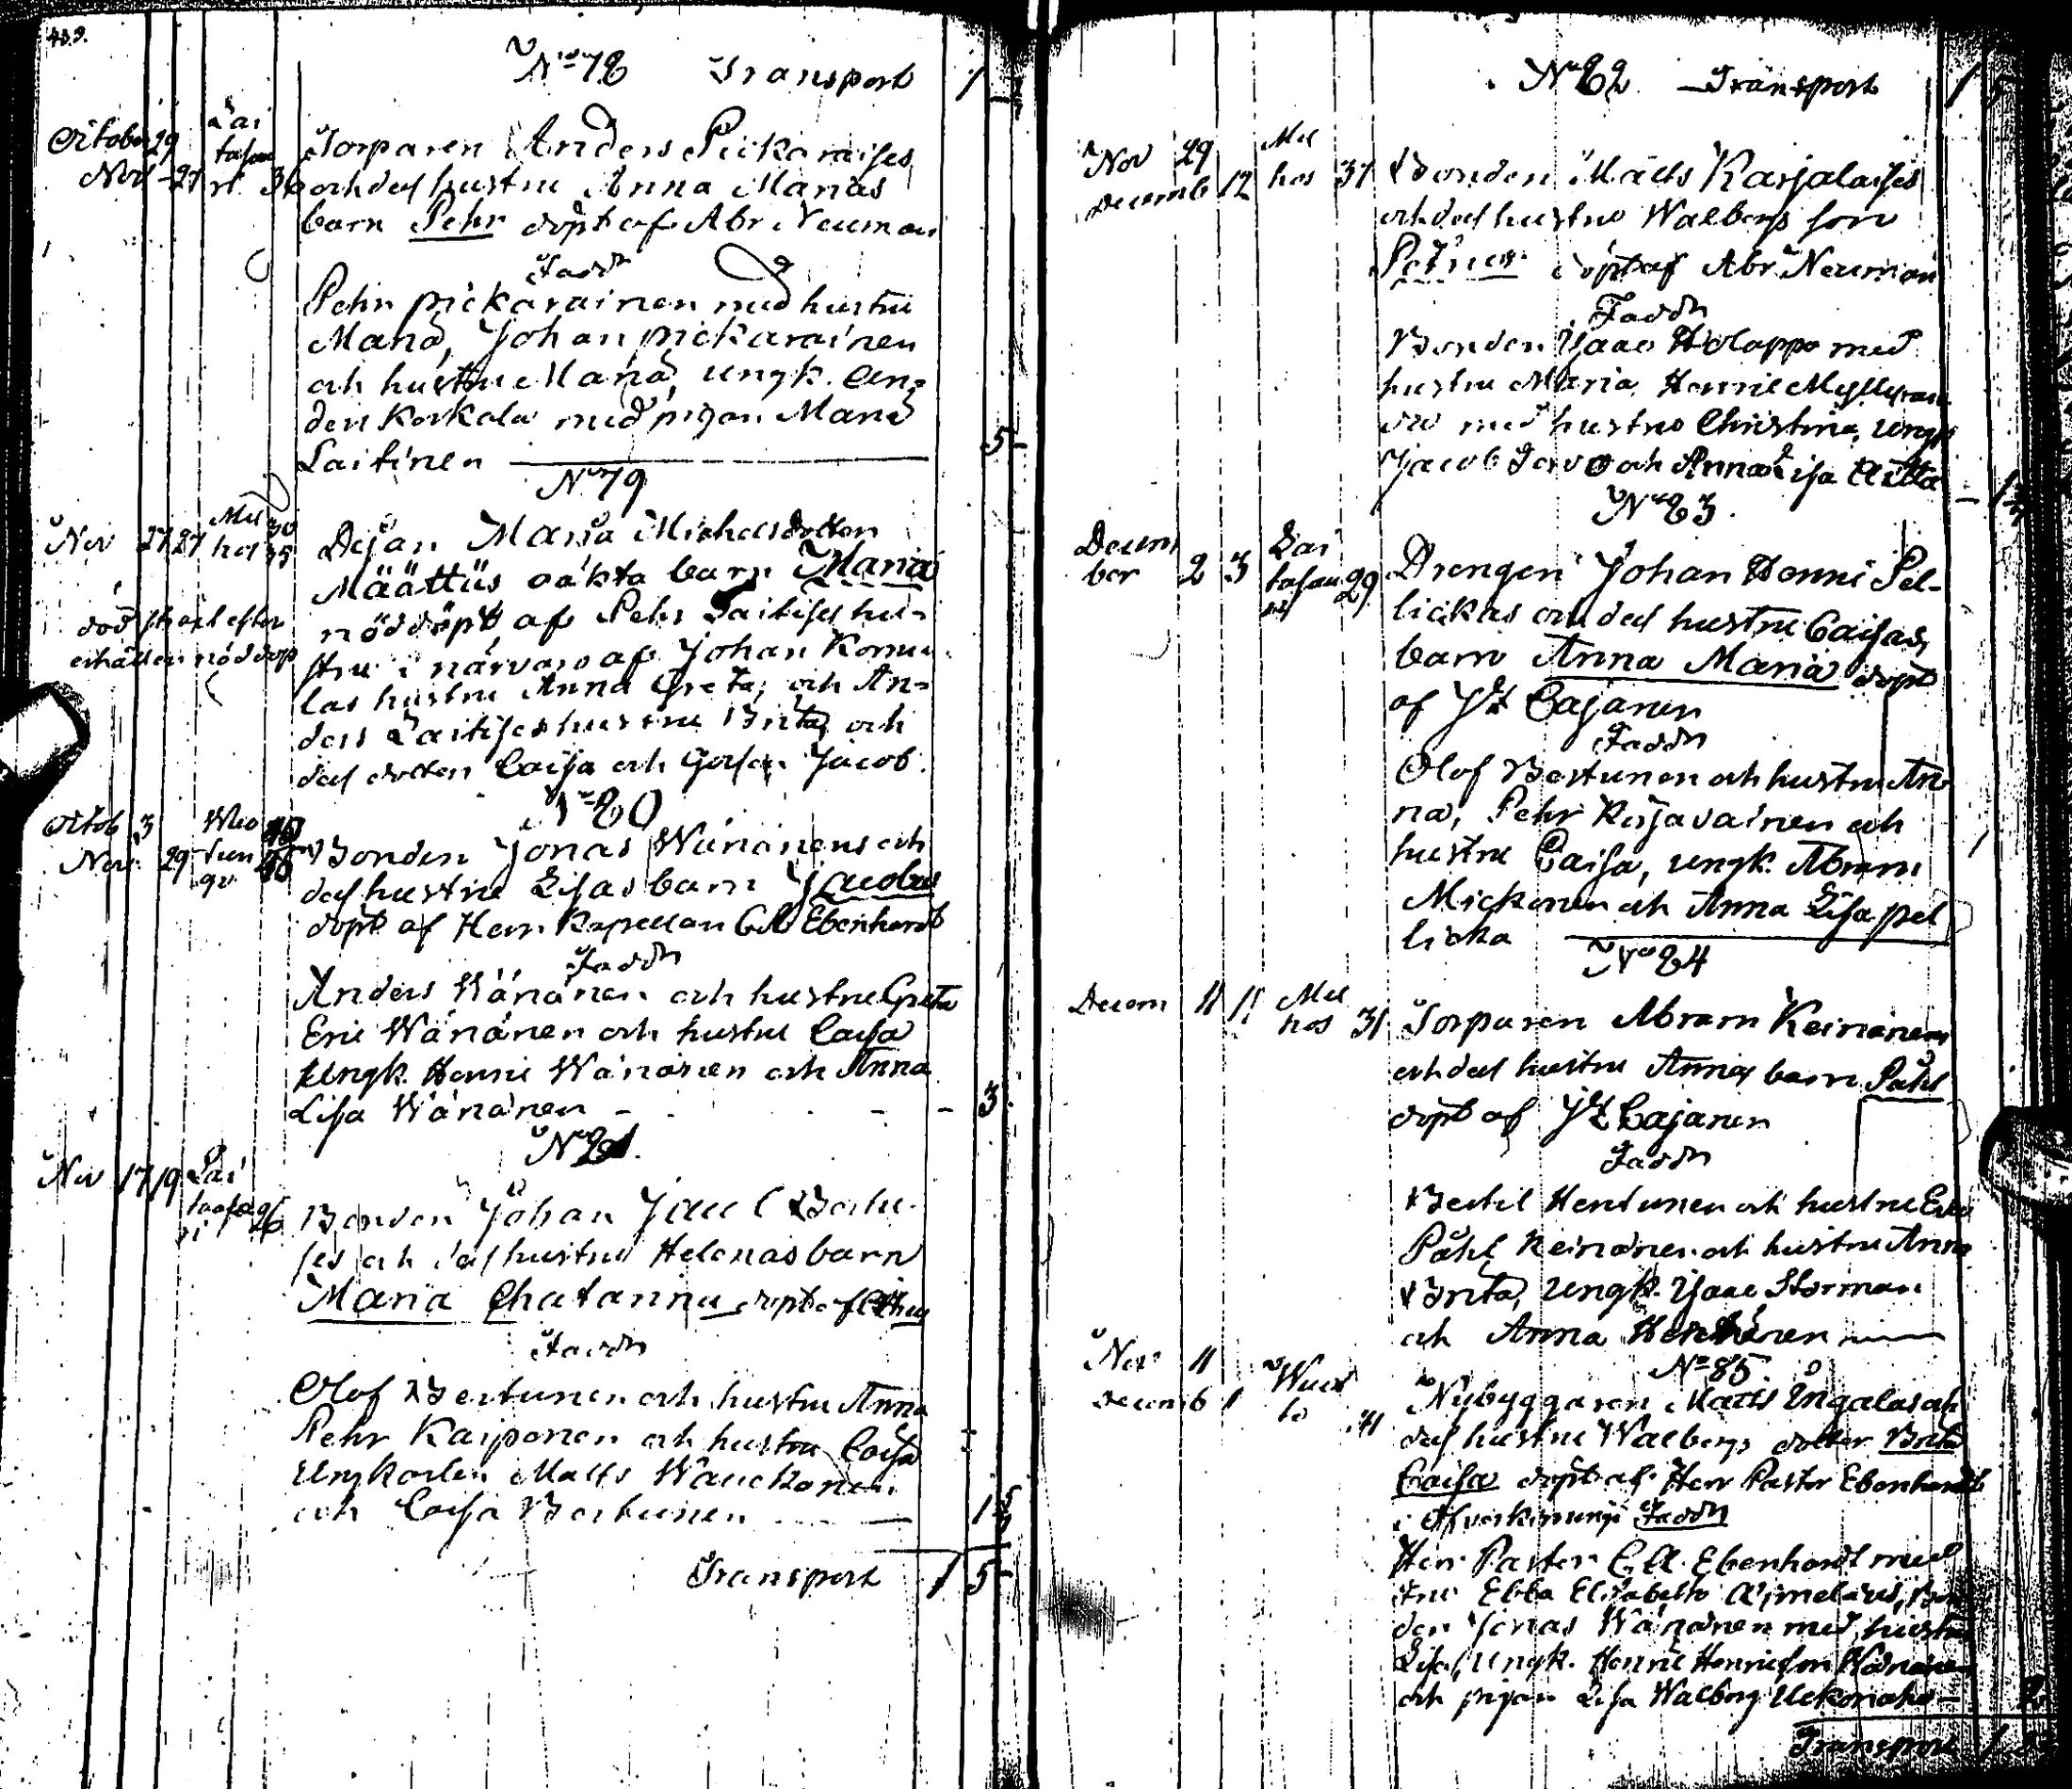 439.
No 78 Transport 1
October 29 Lai
Nov 27 tasaa
ri 36
Torparen Anders Pickaraises
och dess hustru Anna Marias
barn Pehr döpt af Abr Neuman
Faddr
Pehr pickarainen med hustru
Maria, Johan pickarainen
och hustru Maria, ungk. An-
ders Korkala med pigan Maria
Laitinen 5
No 79
Nov 27 27 Mu
hos 35
död strart efter
erhållen nöddop
Pigan Maria Michelsdotter
Määttäs oäkta barn Maria
nöddöpt af Pehr Laitises hu-
stru i närvaro af Johan Komu
las hustru Anna Greta, och An-
ders Laitises hustru Brita, och
dess dotter Caisa och Gossen Jacob.
No 80
Octob 3 Wuo
Nov 29 tun
Bonden Jonas Wänänens och
dess hustru Lisas barn Jacobus
döpt af Herr Kapellan C A Ebenhardt
Faddr
Anders Wänänen och hustru Greta
Eric Wänänen och hustru Caisa
Ungk. Henric Wänänen och Anna
Lisa Wänänen 3
No 81.
Nov 17 19 Lai
tasaa 26
ri
Bonden Johan Jacob Bertu-
ses och dess hustru Helenas barn
Maria Chatarina döpt af
Faddr
Olof Bertunen och hustru Anna
Pehr Kaiponen och hustru Caisa
Ungkarlen Matts Wauckonen
och Caisa Bertunen
Transport 1 5
No 82 Transport 1
Nov 29 Mu
Decemb 12 hos 37
Bonden Matts Karjalaises
och dess hustru Walborgs son
Petrus döpt af Abr. Neuman
Faddr
Bonden Isaac Holappa med
hustru Maria, Henric
med hustru Christina, Ungk
Jacob och Anna Lisa
No 83.
Decem
ber 2 3 Lai
tasaa 29
ri
Drengen Johan Henric Pel-
lickas och dess hustru Caisas
barn Anna Maria döpt
af Jt Cajanen
Faddr
Olof Bertunen och hustru An
na, Pehr Kirjavainen och
hustru Caisa, ungk. Abram
Mickonen och Anna Lisa pel
licka
No 84
Decem 11 11 Mu
hos 31
Torparen Abram Keinänens
och dess hustru Annas barn Påhl
döpt af Jt Cajanen
Faddr
Bertil Hentunen och hustru Eva
Påhl Keinänen och hustru Anna
Brita, Ungk. Isaac Storman
och Anna
No 85.
Nov 11 Wuo
Decemb 1 to 41
Nybyggaren Matts Ingalas och
dess hustru Walborgs dotter Brita
Caisa döpt af Herr Pastor Ebenhardt
i Faddr
Herr Pastor C. A. Ebenhardt med
Fru Ebba Elisabeth Bon
den Jonas Wänänen med hustru
Lisa, Ungk. Henric Henricson Wänänen
och pigan Lisa Walborg 2
Transport